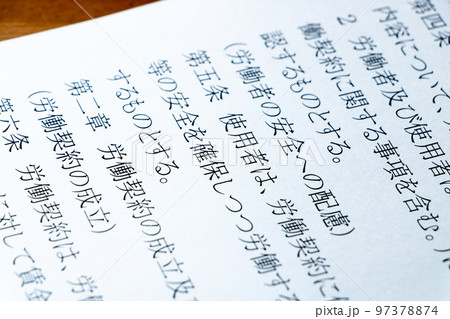 第四条
内容について、
２　労働者及び使用者は
働契約に関する事項を含む。）に
認するものとする。
（労働者の安全への配慮）
第五条　使用者は、労働契約に
等の安全を確保しつつ労働する
するものとする。
第二章　労働契約の成立及
（労働契約の成立）
第六条　労働契約は、
に対して賃金
PIXTA
pixta.jp - 97378874